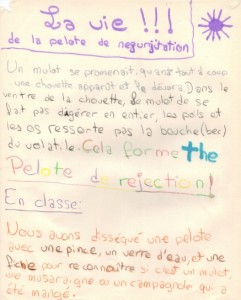 La vie !!!
de la pelote de regurgitation
Un mulot se promenait, quant tout à coup
une chouette apparut et le dévora. Dans le
ventre de la chouette, le mulot de se
fait pas digérer en entier, les poils et
les os ressorte pas la bouche (bec)
du volatile. Cela forme the
Pelote de rejection!
En classe:
Nous avons disséqué une pelote
avec une pince, un verre d'eau, et une
fiche pour reconnaître si c'est un mulot,
musaraigne ou un campagnole qui a
été mangé.